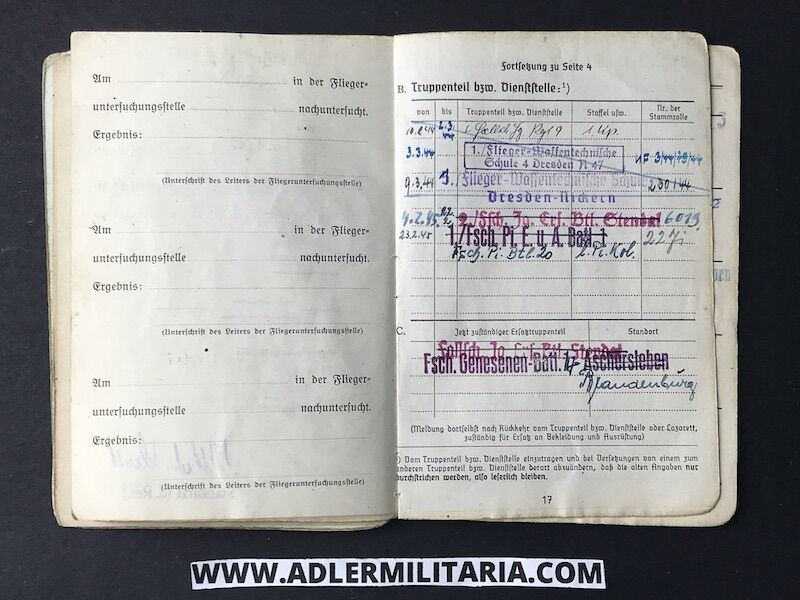 Am in der Flieger-
untersuchungsstelle nachuntersucht.
Ergebnis:
(Unterschrift des Leiters der Fliegeruntersuchungsstelle)
Am in der Flieger-
untersuchungsstelle nachuntersucht.
Ergebnis:
(Unterschrift des Leiters der Fliegeruntersuchungsstelle)
Am in der Flieger-
untersuchungsstelle nachuntersucht.
Ergebnis:
(Unterschrift des Leiters der Fliegeruntersuchungsstelle)
Fortsetzung zu Seite 4
B. Truppenteil bzw. Dienststelle:¹)
von bis Truppenteil bzw. Dienststelle Staffel usw. Nr. der Stammrolle
1 Kp.
3.3.44 1./Flieger-Waffentechnische
Schule 4 Dresden N 47
9.3.44 Flieger-Waffentechnische Schule 230/44
Dresden-Nickern
4.2.45 2./Fsch. Jg. Ers. Btl. Stendal 6019
23.2.45 1./Fsch. Pi. E. u. A. Batl. 1
Fsch. Pi. Btl. 20
C. Jetzt zuständiger Ersatztruppenteil Standort
Fallsch. Jg. Ers. Btl. Stendal
Fsch. Genesenen-Batl. Aschersleben
Brandenburg
(Meldung dortselbst nach Rückkehr vom Truppenteil bzw. Dienststelle oder Lazarett,
zuständig für Ersatz an Bekleidung und Ausrüstung)
¹) Vom Truppenteil bzw. Dienststelle einzutragen und bei Versetzungen von einem zum
anderen Truppenteil bzw. Dienststelle derart abzuändern, daß die alten Angaben nur
durchstrichen werden, also leserlich bleiben.
17
WWW.ADLERMILITARIA.COM